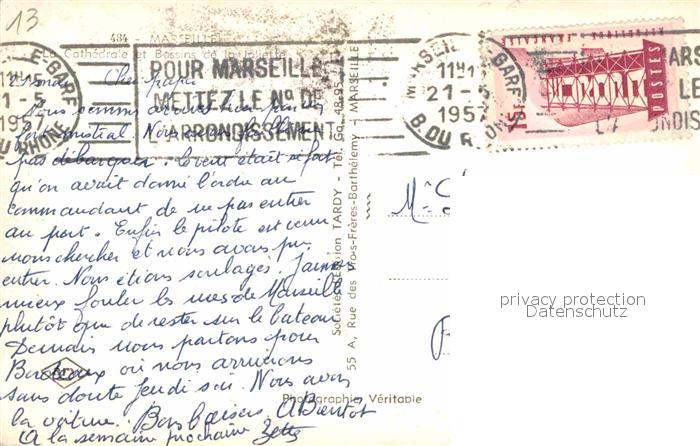 13
484 - MARSEILLE
La Cathédrale et Bassins de la Joliette
MARSEILLE-GARE
11H
21-5
1957
B. DU RHONE
POUR MARSEILLE
METTEZ LE No DE
L'ARRONDISSEMENT
MARSEILLE-GARE
11H
21-5
1957
B. DU RHONE
15F
POSTES
Cher Papa
Nous sommes arrivés
mistral. Nous
pas débarquer. Le vent était si fort
qu'on avait donné l'ordre au
commandant de ne pas entrer
au port. Enfin le pilote est venu
nous chercher et nous avons pu
entrer. Nous étions soulagés. J'aime
mieux fouler les rues de Marseille
plutôt que de rester sur le bateau
Demain nous partons pour
Bordeaux où nous arriverons
sans doute jeudi soir. Nous avons
la voiture. Bons baisers. A Bientôt
A la semaine prochaine
Société d'Edition TARDY - Tel.
55 A, Rue des Trois-Frères-Barthélemy - MARSEILLE
Photographie Véritable
privacy protection
Datenschutz